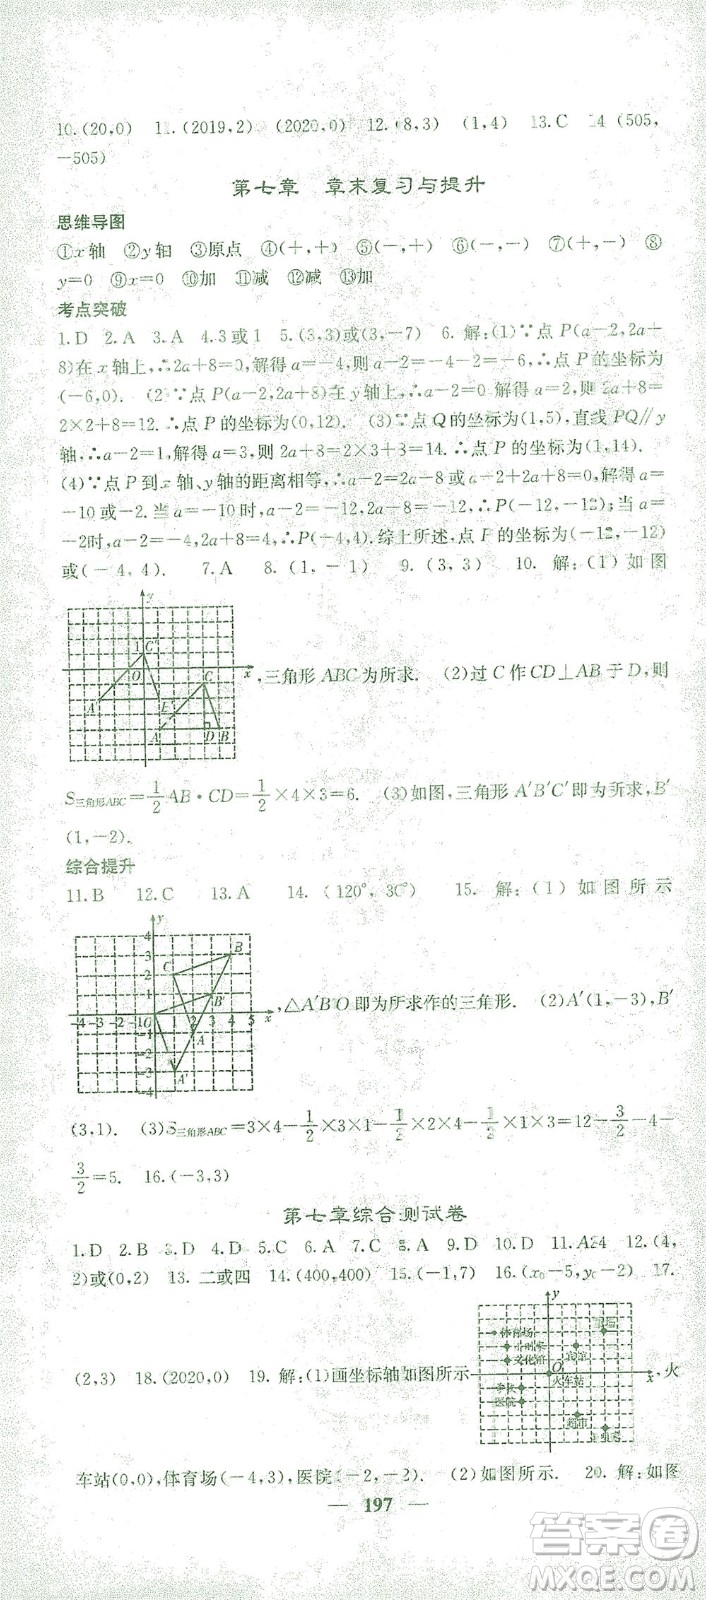 10.(20,0) 11.(2019,2) (2020,0) 12.(8,3) (1,4) 13.C 14.(505,
-505)
第七章 章末复习与提升
思维导图
①x轴 ②y轴 ③原点 ④(+,+) ⑤(-,+) ⑥(-,-) ⑦(+,-) ⑧
y=0 ⑨x=0 ⑩加 ⑪减 ⑫减 ⑬加
考点突破
1.D 2.A 3.A 4.3或1 5.(3,3)或(3,-7) 6.解:(1)∵点P(a-2,2a+
8)在x轴上,∴2a+8=0,解得a=-4,则a-2=-4-2=-6,∴点P的坐标为
(-6,0). (2)∵点P(a-2,2a+8)在y轴上,∴a-2=0.解得a=2,则2a+8=
2×2+8=12.∴点P的坐标为(0,12). (3)∵点Q的坐标为(1,5),直线PQ∥y
轴,∴a-2=1,解得a=3,则2a+8=2×3+8=14.∴点P的坐标为(1,14).
(4)∵点P到x轴、y轴的距离相等,∴a-2=2a+8或a-2+2a+8=0,解得a=
-10或a=-2,当a=-10时,a-2=-12,2a+8=-12,则点P(-12,-12);当a=
-2时,a-2=-4,2a+8=4,则点P(-4,4).综上所述,点P的坐标为(-12,-12)
或(-4,4). 7.A 8.(1,-1) 9.(3,3) 10.解:(1)如图
y
1 C'
O
x
A' B'
C
A D B
,三角形ABC为所求. (2)过C作CD⊥AB于D,则
S三角形ABC=1/2 AB·CD=1/2×4×3=6. (3)如图,三角形A'B'C'即为所求,B'
(1,-2).
综合提升
11.B 12.C 13.A 14.(120°,30°) 15.解:(1)如图所示
y
4
3 B
C 2
1 B'
-4-3-2-1 O 1 2 3 4 5 x
-1 A
-2
-3 A'
-4
,△A'B'O即为所求作的三角形. (2)A'(1,-3),B'
(3,1). (3)S三角形ABC=3×4-1/2×3×1-1/2×4×2-1/2×1×3=12-3/2-4-
3/2=5. 16.(-3,3)
第七章综合测试卷
1.D 2.B 3.D 4.D 5.A 6.D 7.C 8.A 9.D 10.D 11.A 12.(4,
2)或(0,2) 13.二或四 14.(400,400) 15.(-1,7) 16.(x₀-5,y₀-2) 17.
(2,3) 18.(2020,0) 19.解:(1)画坐标轴如图所示
y
体育场
文化宫
宾馆
O
火车站
x
学校
医院
超市
,火
车站(0,0),体育场(-4,3),医院(-2,-2). (2)如图所示. 20.解:如图
— 197 —
答案圈
MXQE.COM